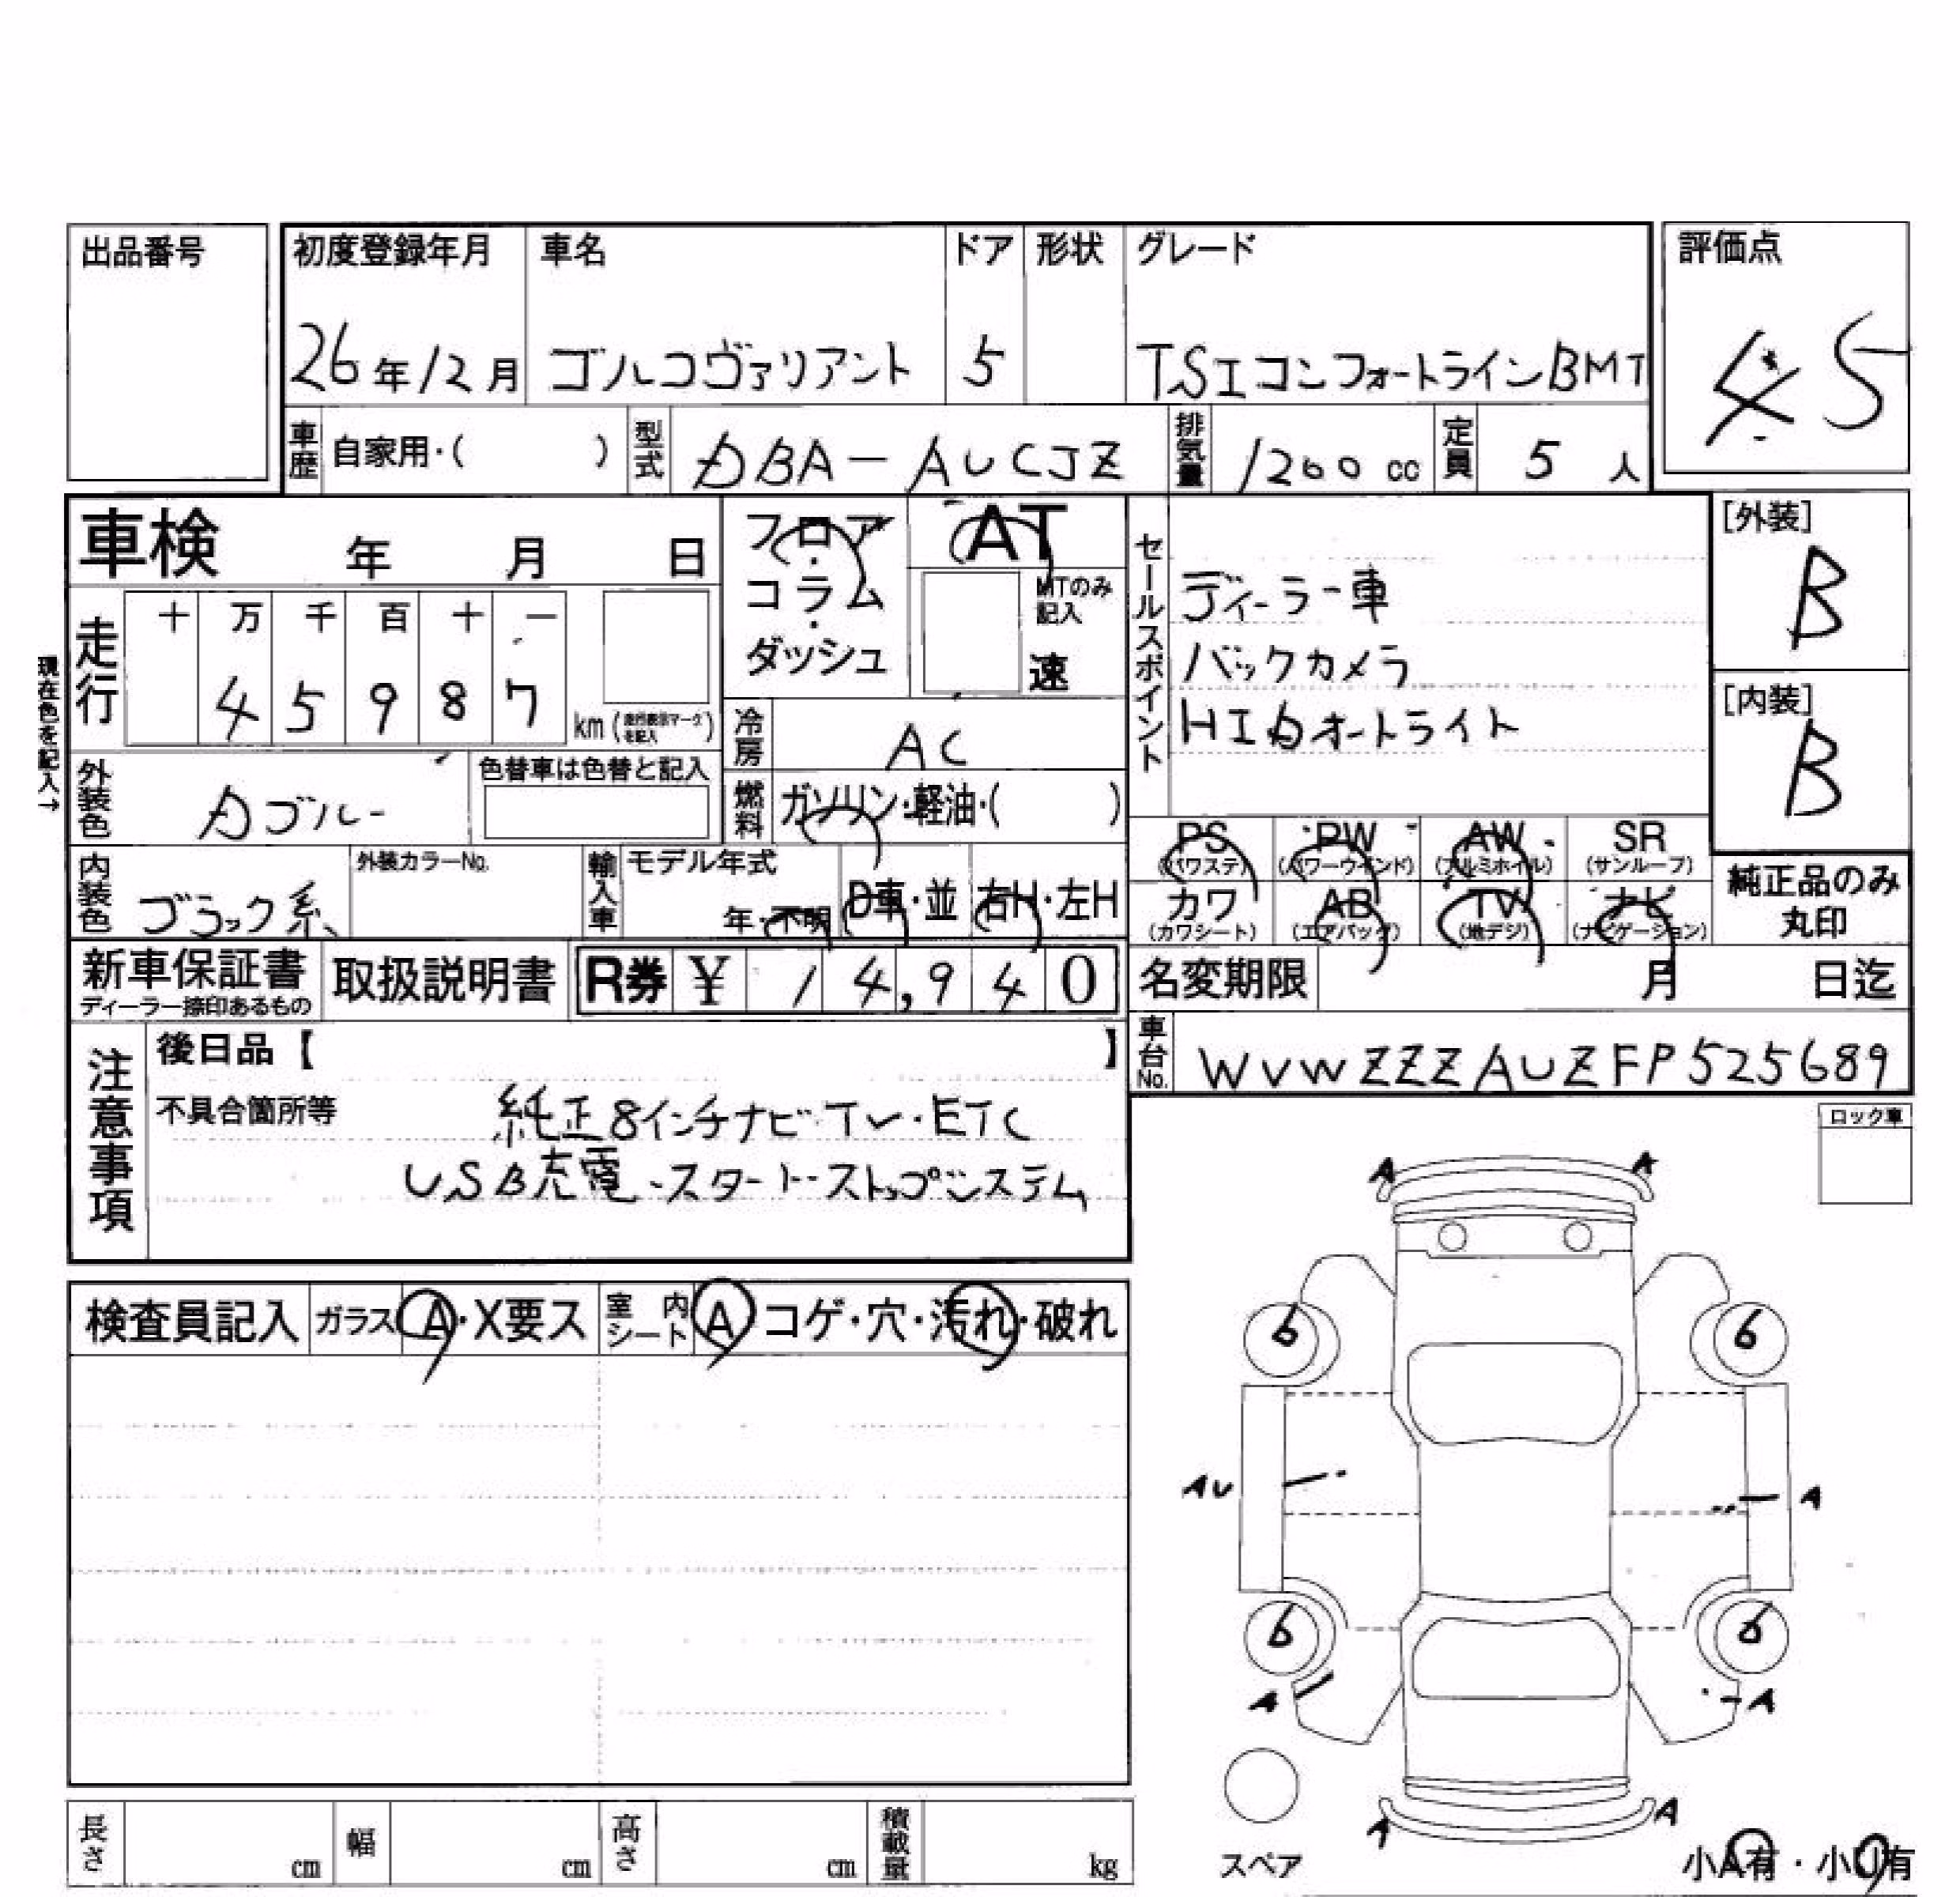 出品番号
初度登録年月 車名 ドア 形状 グレード 評価点
26年12月 ゴルフヴァリアント 5 TSIコンフォートラインBMT 4 5
車歴 自家用・( ) 型式 DBA-AUCJZ 排気量 1200 cc 定員 5 人
車検 年 月 日
フロア・コラム・ダッシュ
AT
MTのみ記入
速
セールスポイント
ディーラー車
バックカメラ
HIDオートライト
[外装]
B
[内装]
B
現在色を記入→
走行 十 万 千 百 十 一
4 5 9 8 7 km
冷房 AC
外装色 Dブルー 色替車は色替と記入
燃料 ガソリン・軽油・( )
内装色 ブラック系 外装カラーNo. 輸入車 モデル年式 年・不明 D車・並 右H・左H
PS (パワステ) PW (パワーウインド) AW (アルミホイル) SR (サンルーフ)
カワ (カワシート) AB (エアバッグ) TV (地デジ) ナビ (ナビゲーション)
純正品のみ
丸印
新車保証書 取扱説明書 R券 ¥ 14,940
ディーラー捺印あるもの
名変期限 月 日迄
車台No. WVWZZZAUZFP525689
注意事項
後日品【 】
不具合箇所等 純正8インチナビ・TV・ETC
USB充電・スタートストップシステム
ロック車
A A
検査員記入 ガラス A・X要ス 室内シート A コゲ・穴・汚れ・破れ
6 6
AU A
6 6
A A
A A
スペア
小A有・小U有
長さ cm 幅 cm 高さ cm 積載量 kg